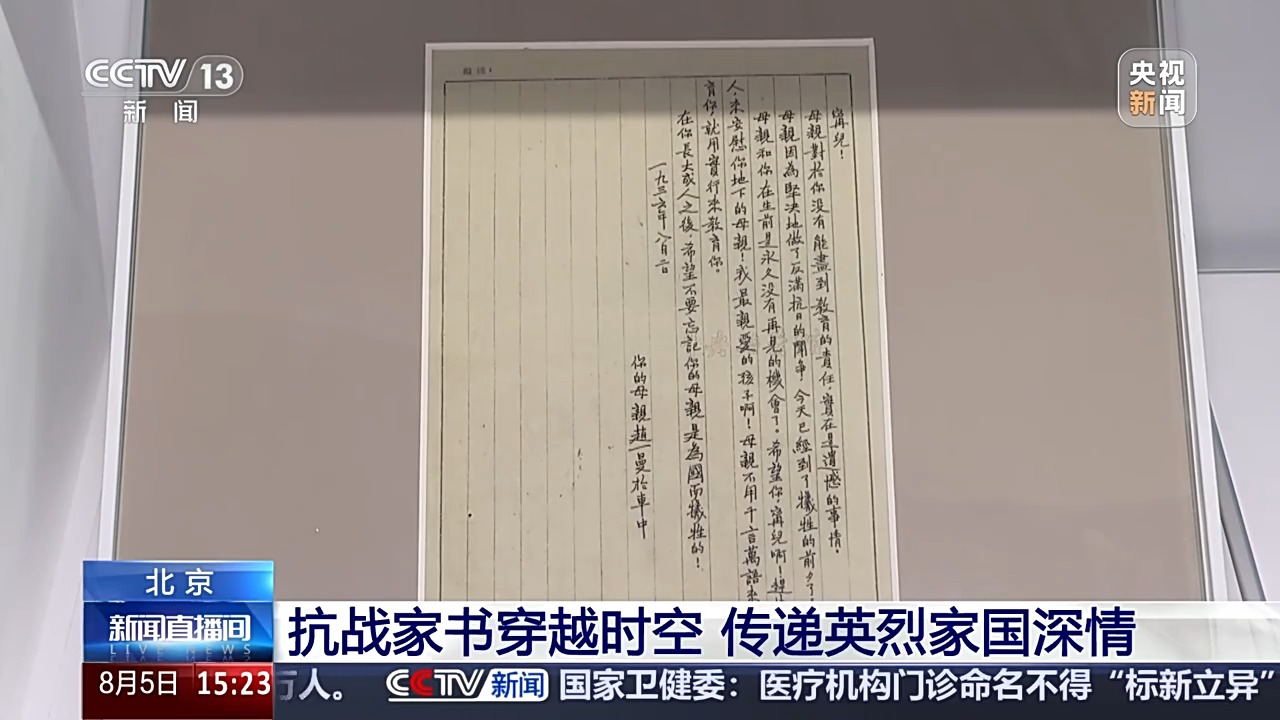 CCTV 13
新闻
央视
新闻
寗兒！
母親對於你没有能盡到教育的責任，實在是遺憾的事情。
母親因為堅决地做了反滿抗日的鬥争，今天已經到了犧牲的前夕了
母親和你在生前是永久没有再見的機會了。希望你，寗兒啊！趕
人，来安慰你地下的母親！我最親愛的孩子啊！母親不用千言萬語来
育你，就用實行来教育你。
在你長大成人之後，希望不要忘記你的母親是為國而犧牲的！
一九三六年八月二日
你的母親趙一曼於車中
北京
新闻直播间
LIVE NEWS
抗战家书穿越时空 传递英烈家国深情
8月5日 15:23
万人。 CCTV新闻 国家卫健委：医疗机构门诊命名不得“标新立异”